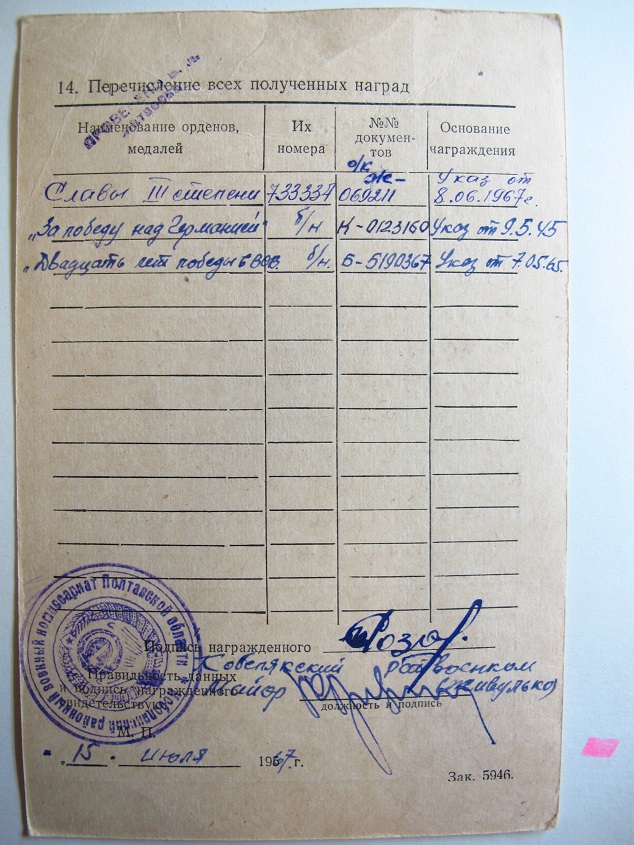 14. Перечисление всех полученных наград
Наименование орденов, медалей
Их номера
№№ документов
Основание награждения
о/к Ж-
Славы III степени 733337 069211 Указ от 8.06.1967г.
„За победу над Германией" б/н К-0123160 Указ от 9.5.45
„Двадцать лет победы в ВОВ. б/н. Б-5190367 Указ от 7.05.65.
Подпись награжденного
Кобелякский райвоенком
Правильность данных
и подпись награжденного Майор
свидетельствую
должность и подпись
М. П.
„15" июля 1967г.
Зак. 5946.
районный военный комиссариат Полтавской области